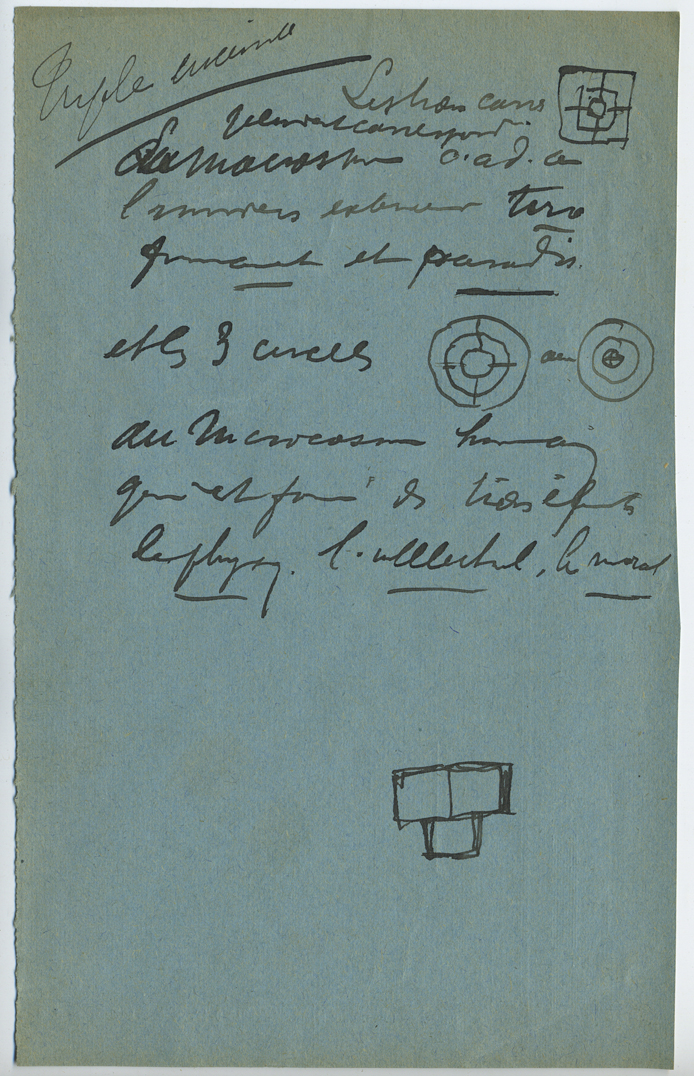 Triple enceinte
Les trois carrés
peuvent correspond.
au macrocosme c. a d. a
l'univers exterieur terre
firmament et paradis.
et les 3 cercles ou
au Microcosme humain
qui est formé de trois
le physiq. l'intellectuel, le moral